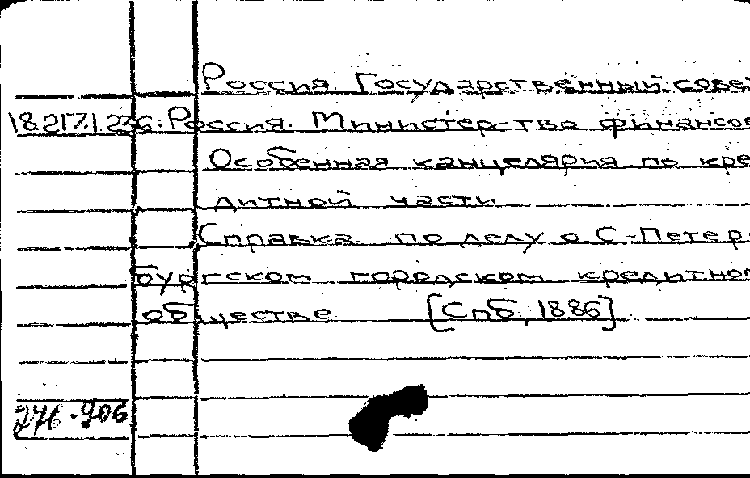 Россия. Государственный сове
18.217.1.236. Россия. Министерство финансов
Особенная канцелярия по кре
дитной части
Справка по делу о С-Петер
бургском городском кредитном
обществе [Спб, 1886]
276.906